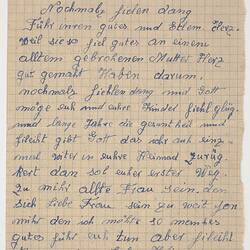 Nochmals fielen dang
Führ ihren gutes und Edlem Herz.
Weil sie so fiel gutes an einem
alltem gebrochenen Mutter Herz
gut gemacht Haben darum,
nochmals fiehlen dang und Gott
möge euh und euhre Kinder fiehl glüg
und lange Jahre die gesuntheit und
fileiht gibt Gott das ihr auh ein
mal witer in euhre Heimnad zurüg
kert dan sol euher erster Weg.
Zu mihr allte Frau sein, den
sich liebe Frau sein zu weit fon
mihr den ich möhte so manches
gutes führ euh tun aber fileiht